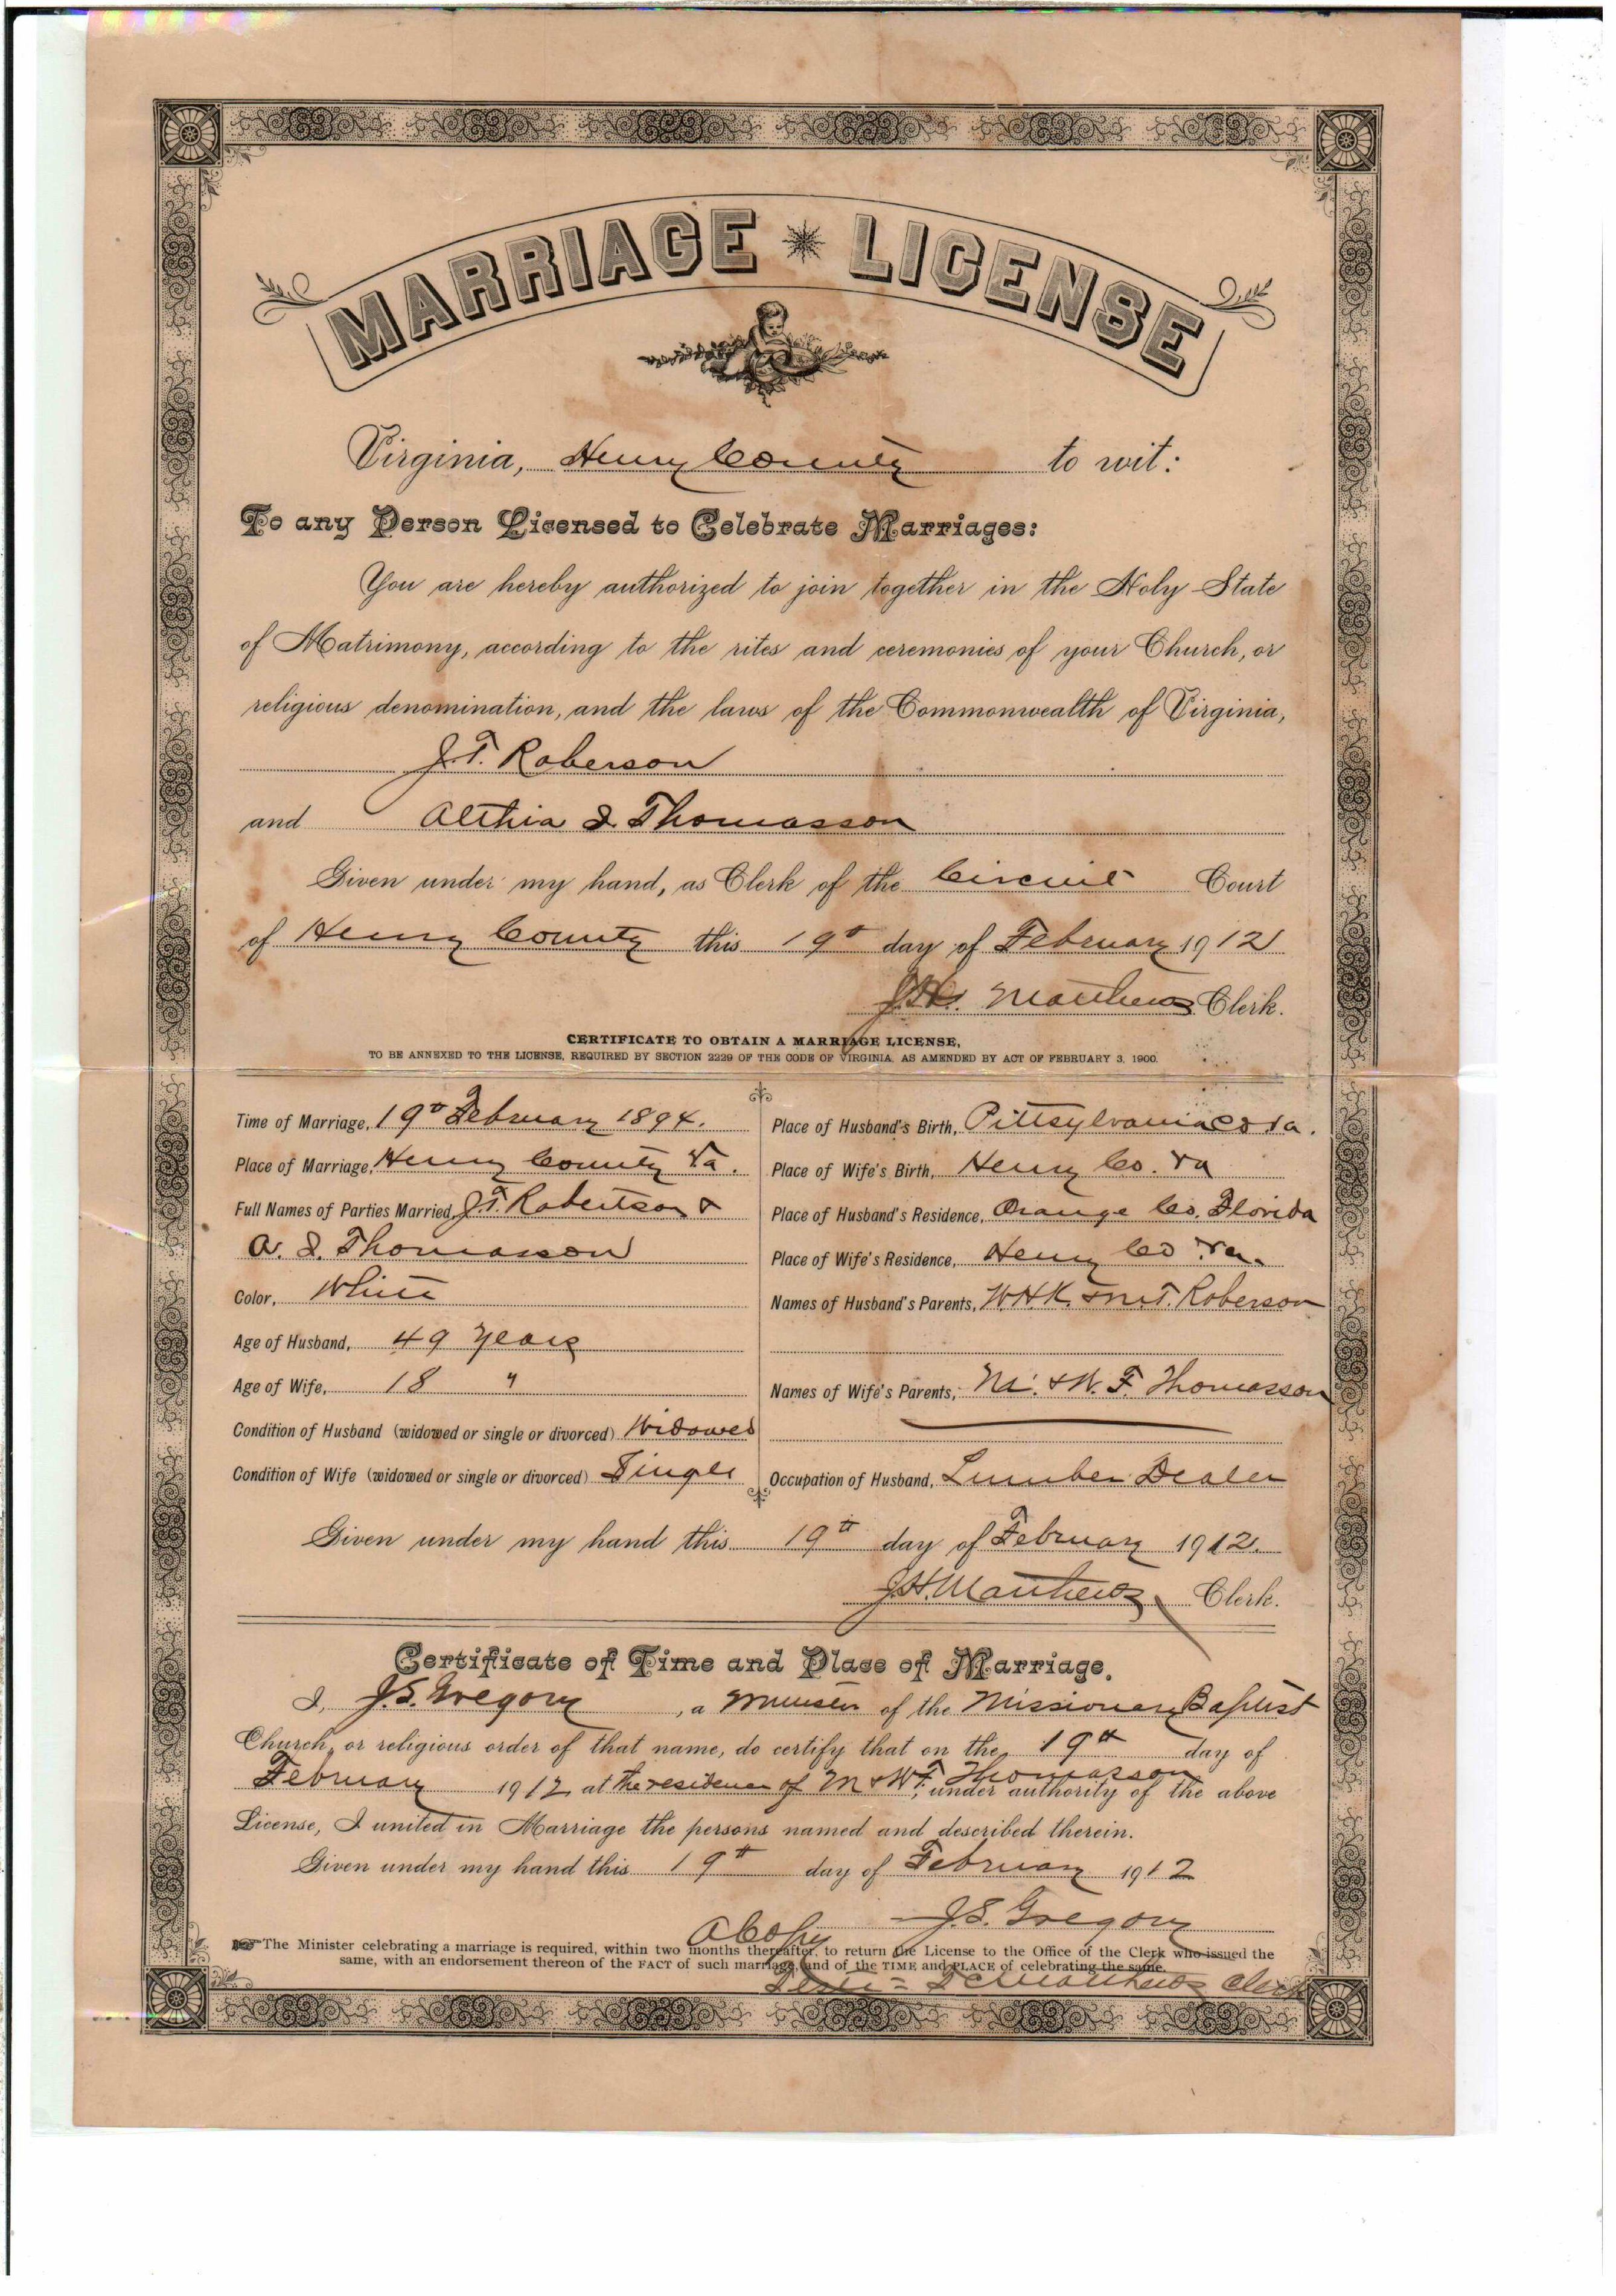 MARRIAGE LICENSE
Virginia, Henry County to wit:
To any Person Licensed to Celebrate Marriages:
You are hereby authorized to join together in the Holy State
of Matrimony, according to the rites and ceremonies of your Church, or
religious denomination, and the laws of the Commonwealth of Virginia,
J.T. Roberson
and Althia I. Thomasson
Given under my hand, as Clerk of the Circuit Court
of Henry County this 19th day of February 1912
J.H. Matthews Clerk.
CERTIFICATE TO OBTAIN A MARRIAGE LICENSE,
TO BE ANNEXED TO THE LICENSE, REQUIRED BY SECTION 2229 OF THE CODE OF VIRGINIA, AS AMENDED BY ACT OF FEBRUARY 3, 1900.
Time of Marriage, 19th February 1894.
Place of Marriage, Henry County Va.
Full Names of Parties Married, J.T. Robertson &
A. I. Thomasson
Color, White
Age of Husband, 49 years
Age of Wife, 18 "
Condition of Husband (widowed or single or divorced) Widowed
Condition of Wife (widowed or single or divorced) Single
Place of Husband's Birth, Pittsylvania Co Va.
Place of Wife's Birth, Henry Co. Va
Place of Husband's Residence, Orange Co. Florida
Place of Wife's Residence, Henry Co Va.
Names of Husband's Parents, W.H.K. & M.T. Roberson
Names of Wife's Parents, M. & W. F. Thomasson
Occupation of Husband, Lumber Dealer
Given under my hand this 19th day of February 1912.
J.H. Matthews Clerk.
Certificate of Time and Place of Marriage.
I, J.S. Gregory, a Minister of the Missionary Baptist
Church, or religious order of that name, do certify that on the 19th day of
February 1912 at the residence of M & W.F. Thomasson, under authority of the above
License, I united in Marriage the persons named and described therein.
Given under my hand this 19th day of February 1912
J.S. Gregory
A Copy
The Minister celebrating a marriage is required, within two months thereafter, to return the License to the Office of the Clerk who issued the
same, with an endorsement thereon of the FACT of such marriage, and of the TIME and PLACE of celebrating the same.
Teste = Matthews Clerk